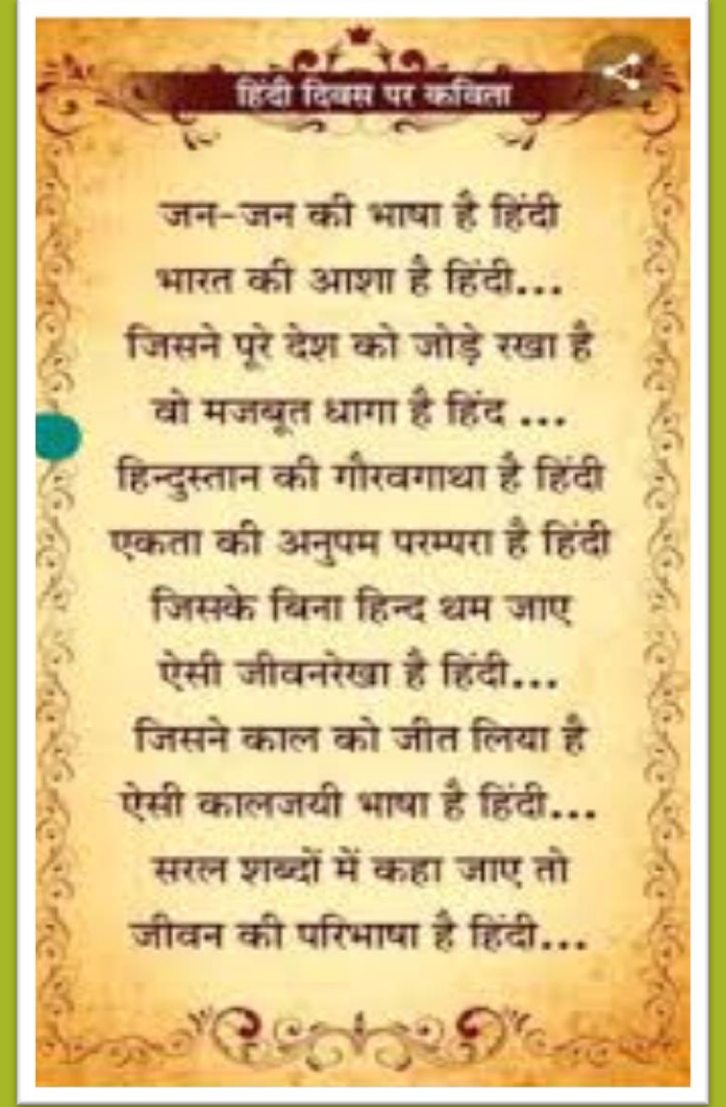 हिंदी दिवस पर कविता
जन-जन की भाषा है हिंदी
भारत की आशा है हिंदी...
जिसने पूरे देश को जोड़े रखा है
वो मजबूत धागा है हिंद ...
हिन्दुस्तान की गौरवगाथा है हिंदी
एकता की अनुपम परम्परा है हिंदी
जिसके बिना हिन्द थम जाए
ऐसी जीवनरेखा है हिंदी...
जिसने काल को जीत लिया है
ऐसी कालजयी भाषा है हिंदी...
सरल शब्दों में कहा जाए तो
जीवन की परिभाषा है हिंदी...